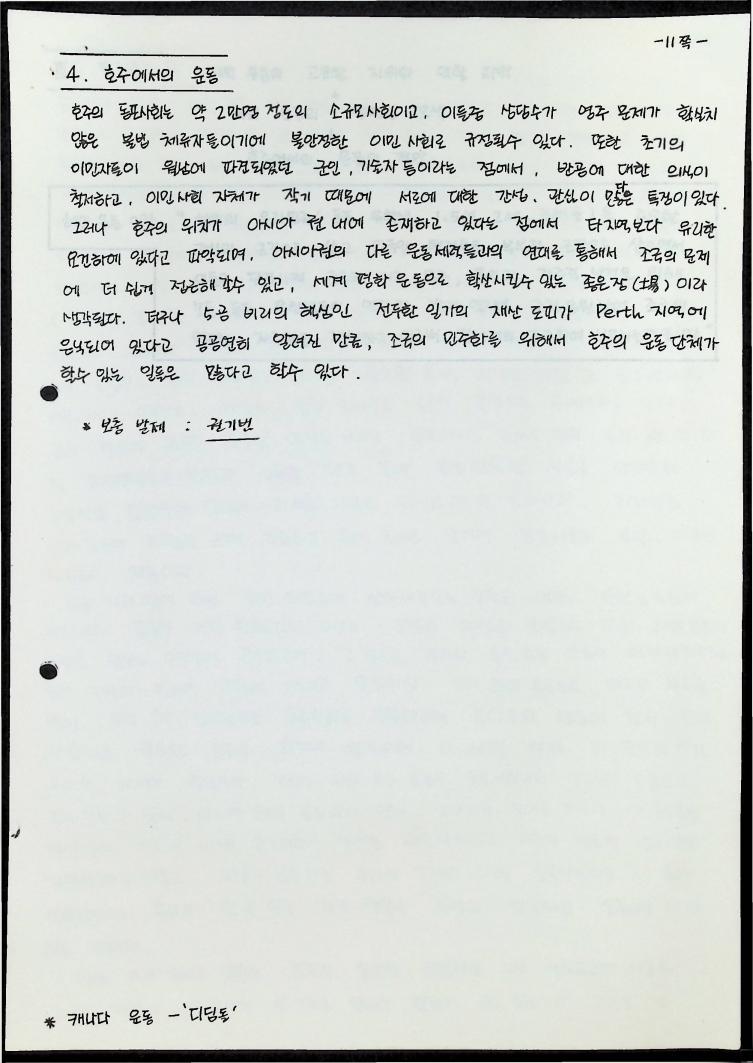 -11쪽-
4. 호주에서의 운동
호주의 동포사회는 약 2만명 정도의 소규모사회이고, 이들중 상당수가 영주 문제가 확실치
않은 불법 체류자들이기에 불안정한 이민 사회로 규정될수 있다. 또한 초기의
이민자들이 월남에 파견되었던 군인, 기술자 등이라는 점에서, 반공에 대한 의식이
철저하고, 이민사회 자체가 작기 때문에 서로에 대한 간섭, 관심이 많다는 특징이 있다.
그러나 호주의 위치가 아시아 권 내에 존재하고 있다는 점에서 타지역보다 유리한
요건하에 있다고 파악되며, 아시아권의 다른 운동세력들과의 연대를 통해서 조국의 문제
에 더 쉽게 접근해갈수 있고, 세계 평화 운동으로 확산시킬수 있는 좋은장(場)이라
생각된다. 더구나 5공 비리의 핵심인 전두환 일가의 재산 도피가 Perth 지역에
은닉되어 있다고 공공연히 알려진 만큼, 조국의 민주화를 위해서 호주의 운동단체가
할수 있는 일들은 많다고 할수 있다.
* 보충 발제 : 권기범
* 캐나다 운동 - '디딤돌'